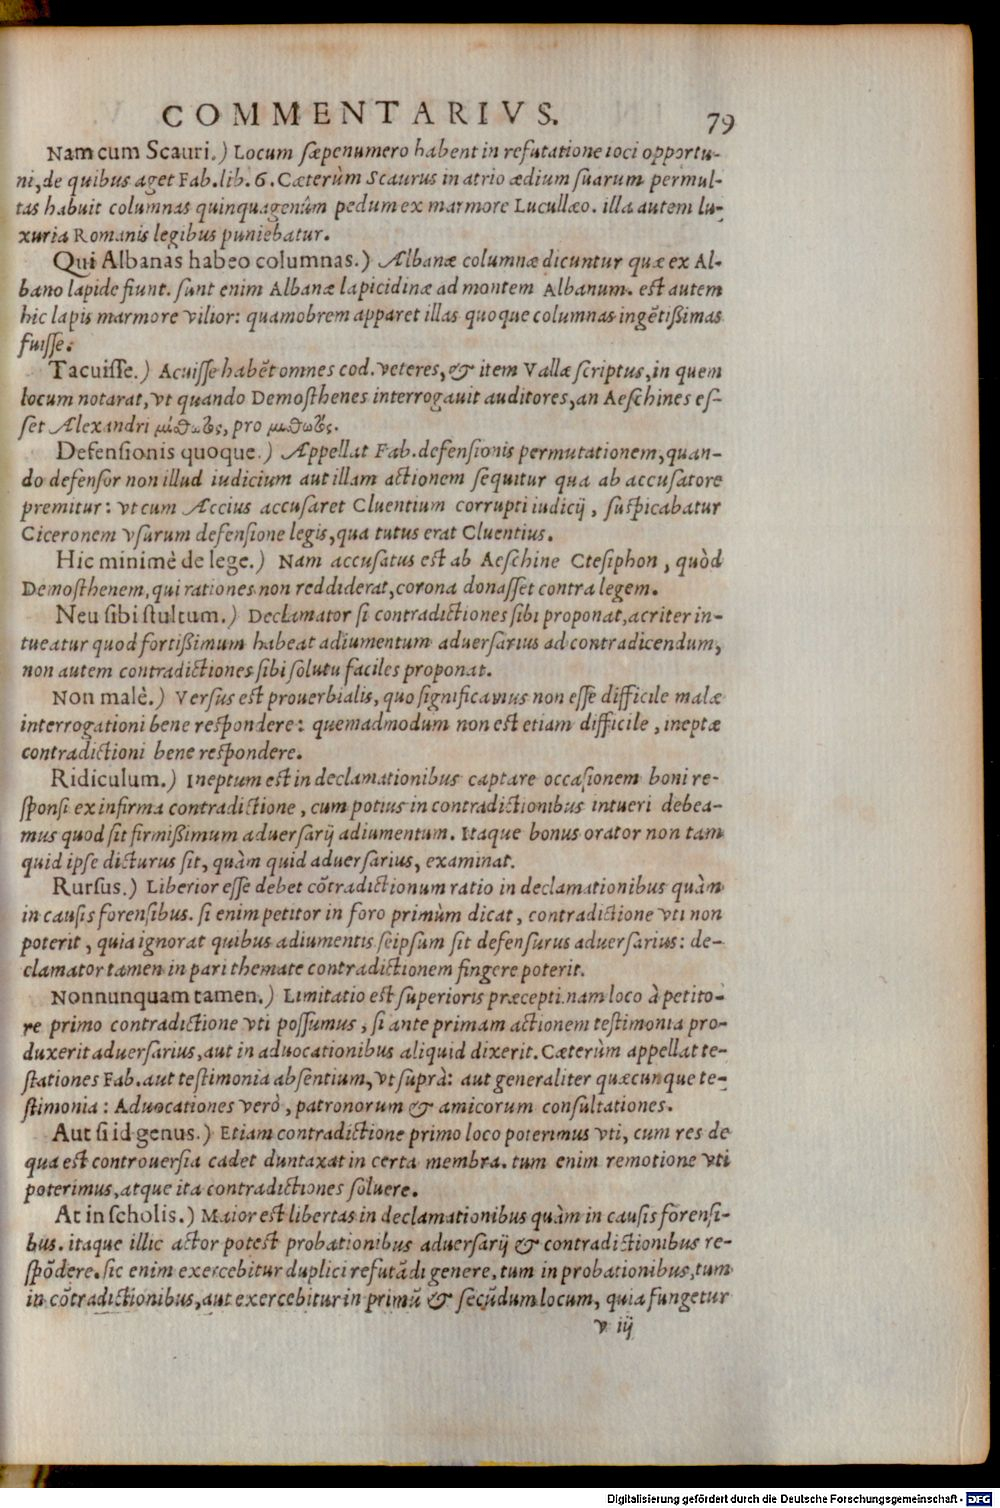 COMMENTARIVS. 79
Nam cum Scauri.) Locum sæpenumero habent in refutatione ioci opportu-
ni, de quibus aget Fab. lib. 6. Cæterùm Scaurus in atrio ædium suarum permul-
tas habuit columnas quinquagenûm pedum ex marmore Lucullæo. illa autem lu-
xuria Romanis legibus puniebatur.
Qui Albanas habeo columnas.) Albanæ columnæ dicuntur quæ ex Al-
bano lapide fiunt. sunt enim Albanæ lapicidinæ ad montem Albanum. est autem
hic lapis marmore vilior: quamobrem apparet illas quoque columnas ingētißimas
fuisse.
Tacuisse.) Acuisse habēt omnes cod. veteres, & item Vallæ scriptus, in quem
locum notarat, vt quando Demosthenes interrogauit auditores, an Aeschines es-
set Alexandri μίσθωτος, pro μισθωτός.
Defensionis quoque.) Appellat Fab. defensionis permutationem, quan-
do defensor non illud iudicium aut illam actionem sequitur qua ab accusatore
premitur: vt cum Accius accusaret Cluentium corrupti iudicij, suspicabatur
Ciceronem vsurum defensione legis, qua tutus erat Cluentius.
Hic minimè de lege.) Nam accusatus est ab Aeschine Ctesiphon, quòd
Demosthenem, qui rationes non reddiderat, corona donasset contra legem.
Neu sibi stultum.) Declamator si contradictiones sibi proponat, acriter in-
tueatur quod fortißimum habeat adiumentum aduersarius ad contradicendum,
non autem contradictiones sibi solutu faciles proponat.
Non malè.) Versus est prouerbialis, quo significamus non esse difficile malæ
interrogationi bene respondere: quemadmodum non est etiam difficile, ineptæ
contradictioni bene respondere.
Ridiculum.) Ineptum est in declamationibus captare occasionem boni re-
sponsi ex infirma contradictione, cum potius in contradictionibus intueri debea-
mus quod sit firmißimum aduersarij adiumentum. Itaque bonus orator non tam
quid ipse dicturus sit, quàm quid aduersarius, examinat.
Rursus.) Liberior esse debet cōtradictionum ratio in declamationibus quàm
in causis forensibus. si enim petitor in foro primùm dicat, contradictione vti non
poterit, quia ignorat quibus adiumentis seipsum sit defensurus aduersarius: de-
clamator tamen in pari themate contradictionem fingere poterit.
Nonnunquam tamen.) Limitatio est superioris præcepti. nam loco à petito-
re primo contradictione vti possumus, si ante primam actionem testimonia pro-
duxerit aduersarius, aut in aduocationibus aliquid dixerit. Cæterùm appellat te-
stationes Fab. aut testimonia absentium, vt suprà: aut generaliter quæcunque te-
stimonia: Aduocationes verò, patronorum & amicorum consultationes.
Aut si id genus.) Etiam contradictione primo loco poterimus vti, cum res de
qua est controuersia cadet duntaxat in certa membra. tum enim remotione vti
poterimus, atque ita contradictiones soluere.
At in scholis.) Maior est libertas in declamationibus quàm in causis forensi-
bus. itaque illic actor potest probationibus aduersarij & contradictionibus re-
spōdere. sic enim exercebitur duplici refutādi genere, tum in probationibus, tum
in cōtradictionibus, aut exercebitur in primū & secūdum locum, quia fungetur
v iij
Digitalisierung gefördert durch die Deutsche Forschungsgemeinschaft - DFG